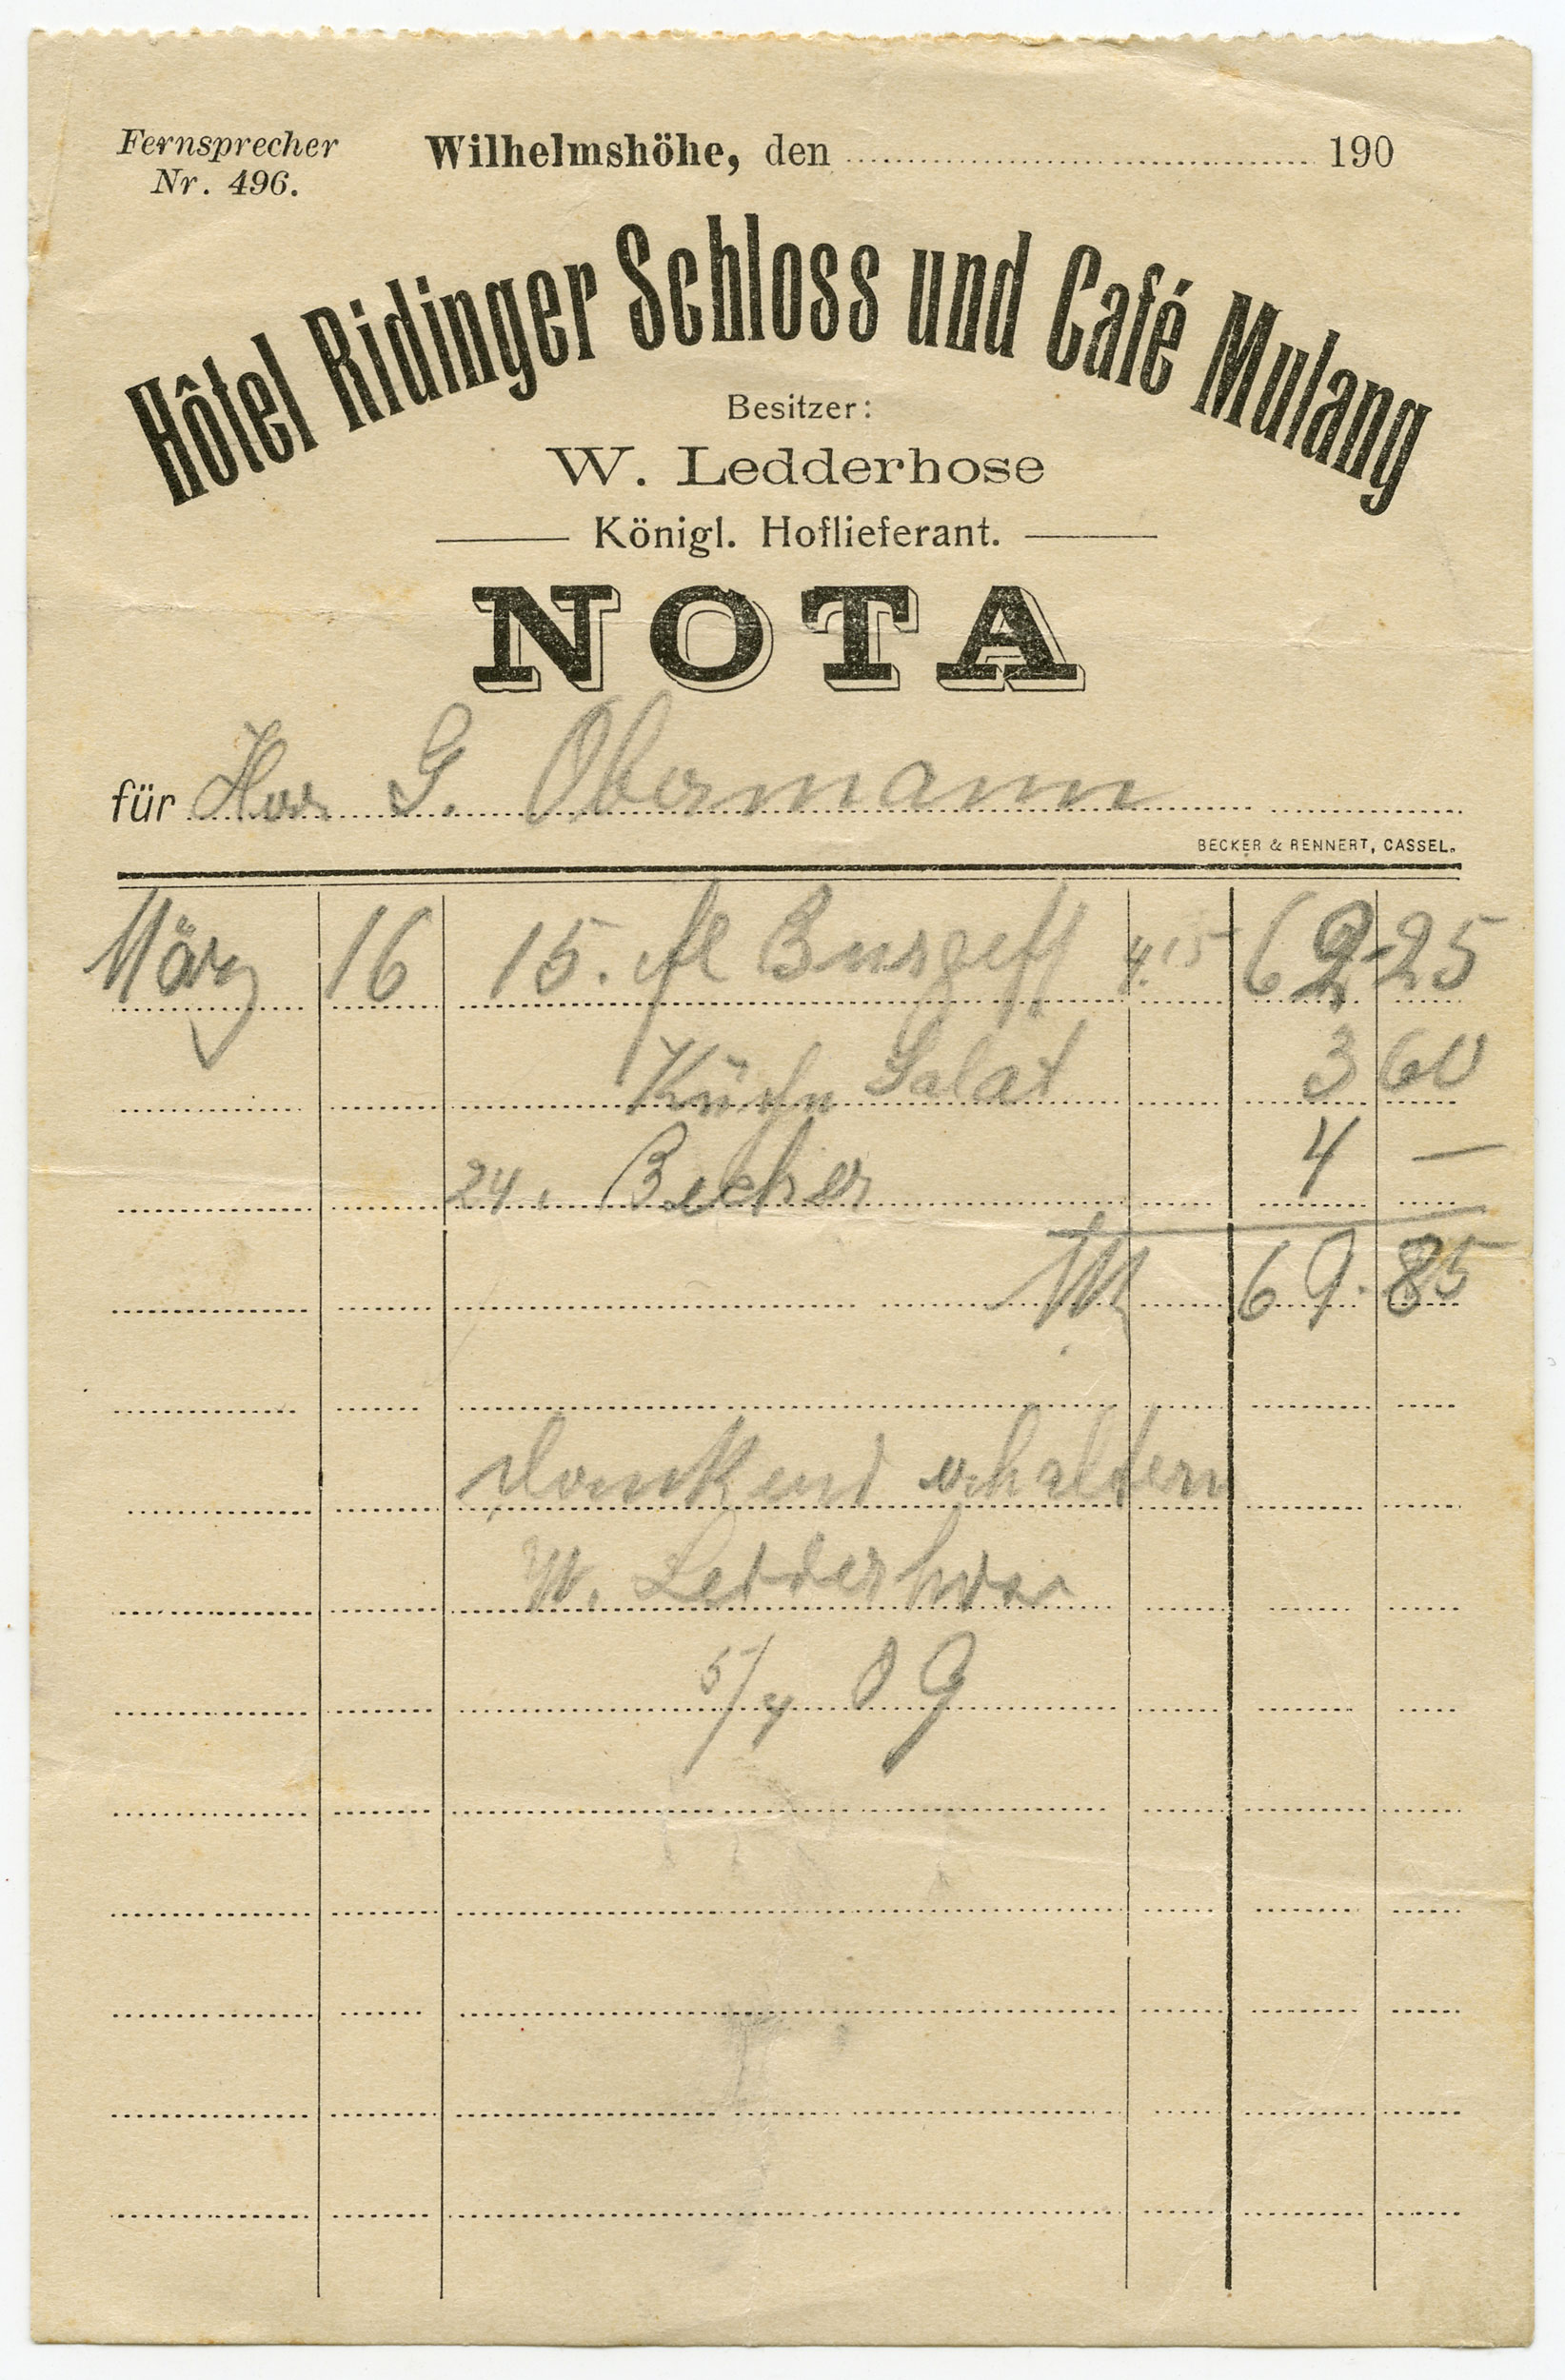 Fernsprecher
Nr. 496.
Wilhelmshöhe, den 190
Hôtel Ridinger Schloss und Café Mulang
Besitzer:
W. Ledderhose
Königl. Hoflieferant.
NOTA
für Herr G. Obermann
BECKER & RENNERT, CASSEL.
März 16 15. fl Burgeff 4.15 62.25
Salat 3 60
24. Becher 4 —
M 69.85
Dankend erhalten
W. Ledderhose
5/4 09